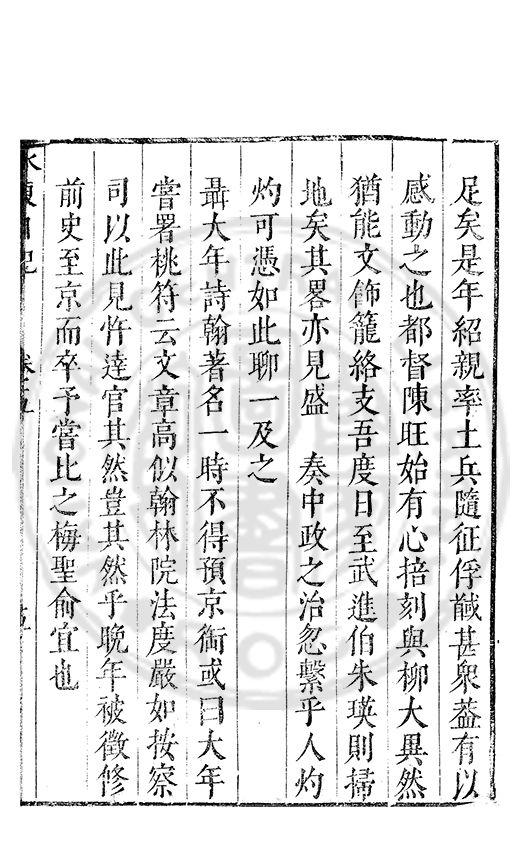 足矣是年紹親率土兵隨征俘馘甚衆葢有以
感動之也都督陳旺始有心掊刻與柳大異然
猶能文飾籠絡支吾度日至武進伯朱瑛則掃
地矣其畧亦見盛　奏中政之治忽繫乎人灼
灼可憑如此聊一及之
聶大年詩翰著名一時不得預京銜或曰大年
嘗署桃符云文章高似翰林院法度嚴如按察
司以此見忤達官其然豈其然乎晚年被徵修
前史至京而卒予嘗比之梅聖俞宜也